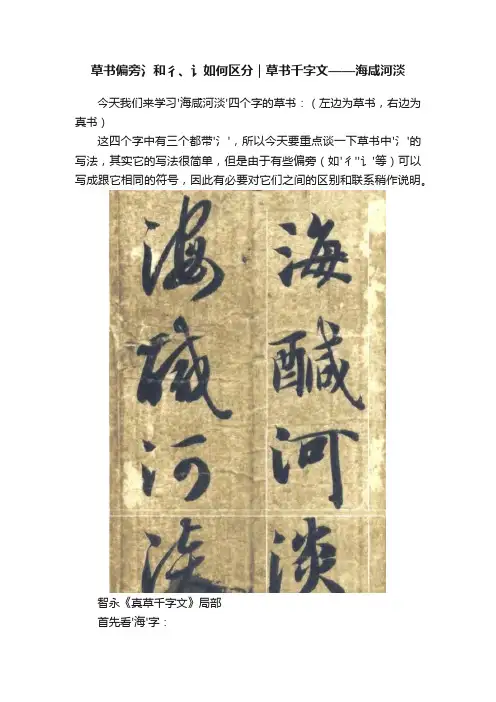 草书偏旁氵和彳、讠如何区分｜草书千字文——海咸河淡
今天我们来学习'海咸河淡'四个字的草书：（左边为草书，右边为
真书）
这四个字中有三个都带'氵'，所以今天要重点谈一下草书中'氵'的
写法，其实它的写法很简单，但是由于有些偏旁（如'彳''讠'等）可以
写成跟它相同的符号，因此有必要对它们之间的区别和联系稍作说明。
海醎河淡
海醎河淡
智永《真草千字文》局部
首先看'海'字：